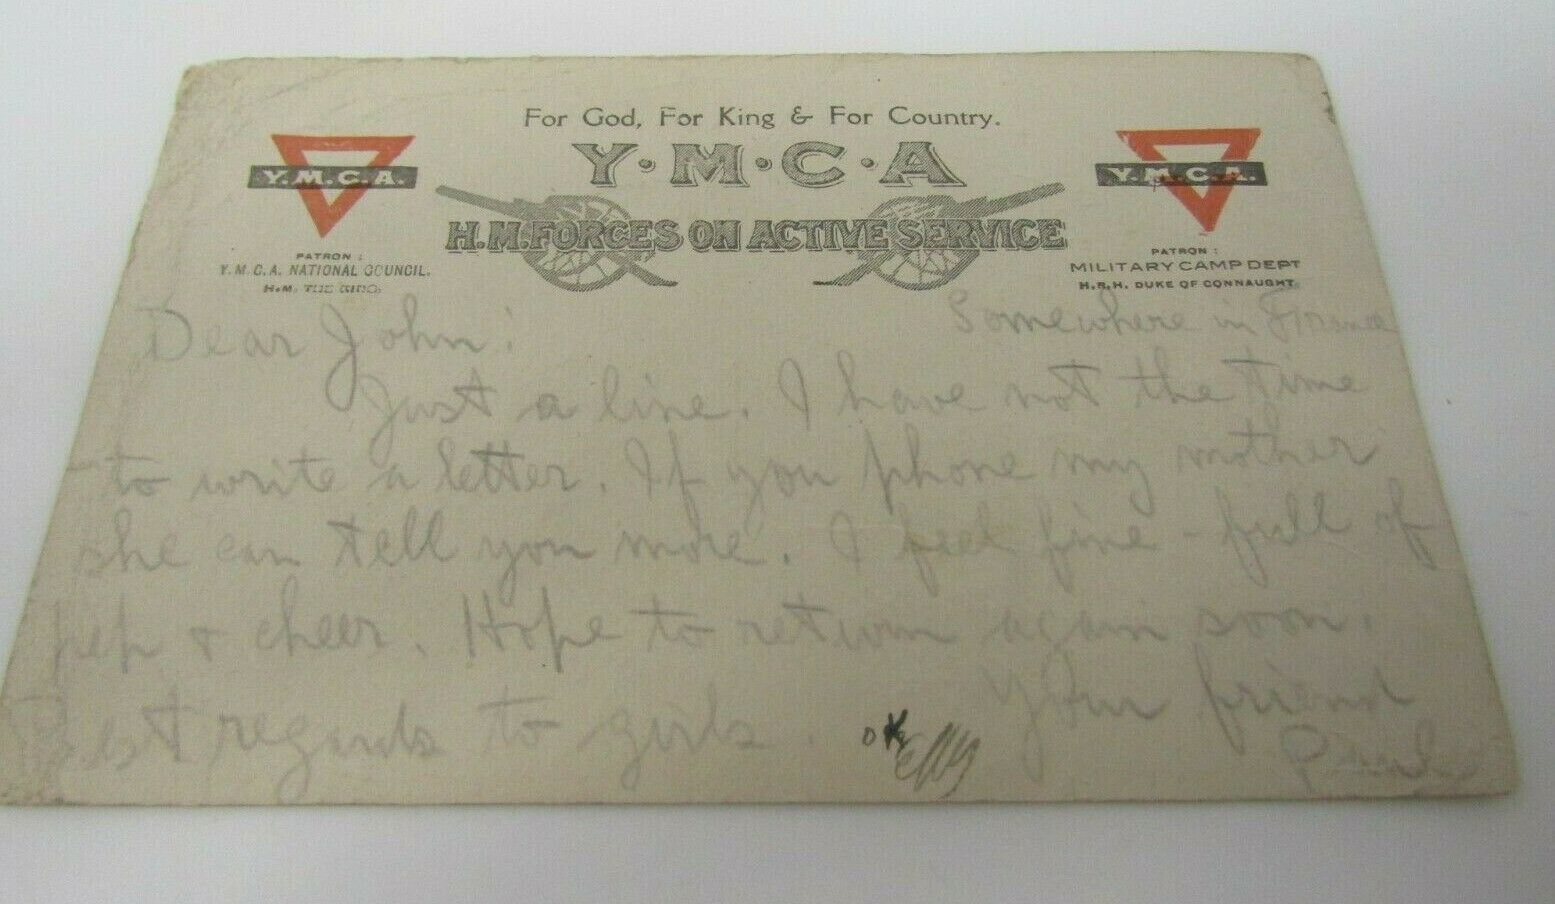 For God, For King & For Country.
Y·M·C·A
H.M. FORCES ON ACTIVE SERVICE
Y.M.C.A.
PATRON :
Y.M.C.A. NATIONAL COUNCIL.
H.M. THE KING.
Y.M.C.A.
PATRON :
MILITARY CAMP DEPT
H.R.H. DUKE OF CONNAUGHT.
Somewhere in France
Dear John:
Just a line. I have not the time
to write a letter. If you phone my mother
she can tell you more. I feel fine - full of
pep & cheer. Hope to return again soon.
Best regards to girls. Your friend
OK
Paul